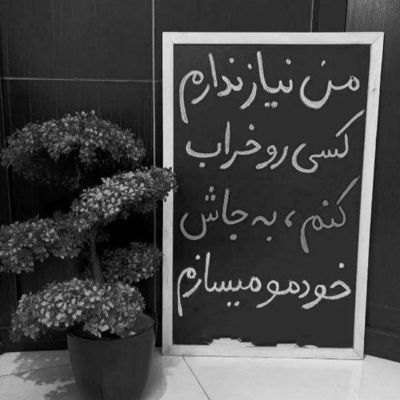 من نیاز ندارم
کسی رو خراب
کنم، به جاش
خودمو میسازم